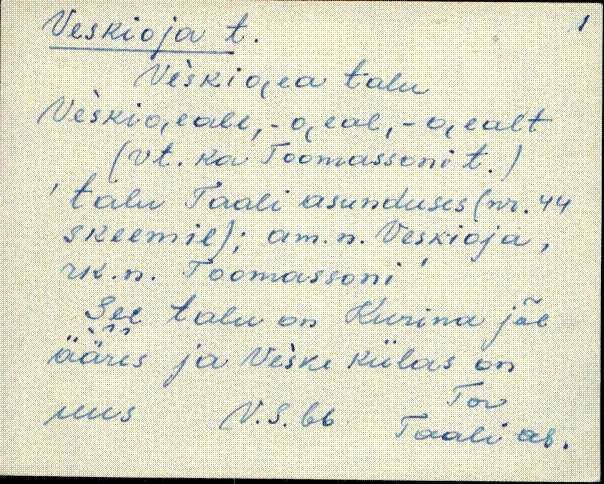 Veskioja t. 1
Vèskio̭ea talu
Vèskio̭eale, -o̭eal, -o̭ealt
(vt. ka Toomassoni t.)
' talu Taali asunduses (nr. 44
skeemil); am. n. Veskioja,
rk. n. Toomassoni '
See talu on Kurina jõe
ääres ja Vèske külas on
uus V.S. 66 Tor
Taali as.